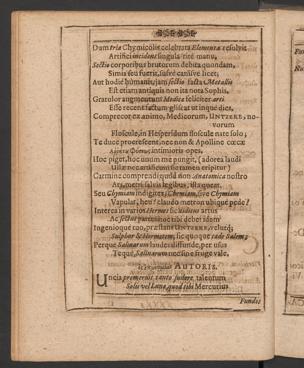 Dum tria Chymicolis celebrata Elementa resolvit
Artifici incidens singula rite manu,
Sectio corporibus brutorum debita quondam,
Simia seu fuerit, sive canisve licet;
Aut hodie humanis, jam sectio facta Metallis
Est etiam antiquis non ita nota Sophis.
Gratulor augmentum Medica feliciter arti
Esse recenti factum gliscat ut inque dies.
Comprecor ex animo, Medicorum, UNTZERE, no-
vorum
Floscule, in Hesperidum floscule nate solo,
Te duce proerescent, nec non & Apolline cœcæ
intimioris opes.
Hoc piget, hoc unum me pungit, (adorea laudi
Ista ne carissicunt sic tamen eripitur)
Carmine comprendi quod non Anatomica nostro
Ars, metri salvis legibus, ista queat.
Seu Chymiam indigites, Chemiam, sive Chymiam
Vapulat, heu! claudo metron ubique pede?
Interea in varios Hermes sic artus
Ac sectus partes nunc tibi debet idem
Ingenioque tuo, præstans UNTZERE,
Sulphur & Hermetem, sic quoque rade Salem;
Perque Salinarum laudes diffunde, per usus
Teque, Salinarum nec sine fruge vale.
AUTORIS.
Uncia præmoriis tanto talentum
Solis vel Lunæ, quod tibi Mercurius
Fundit